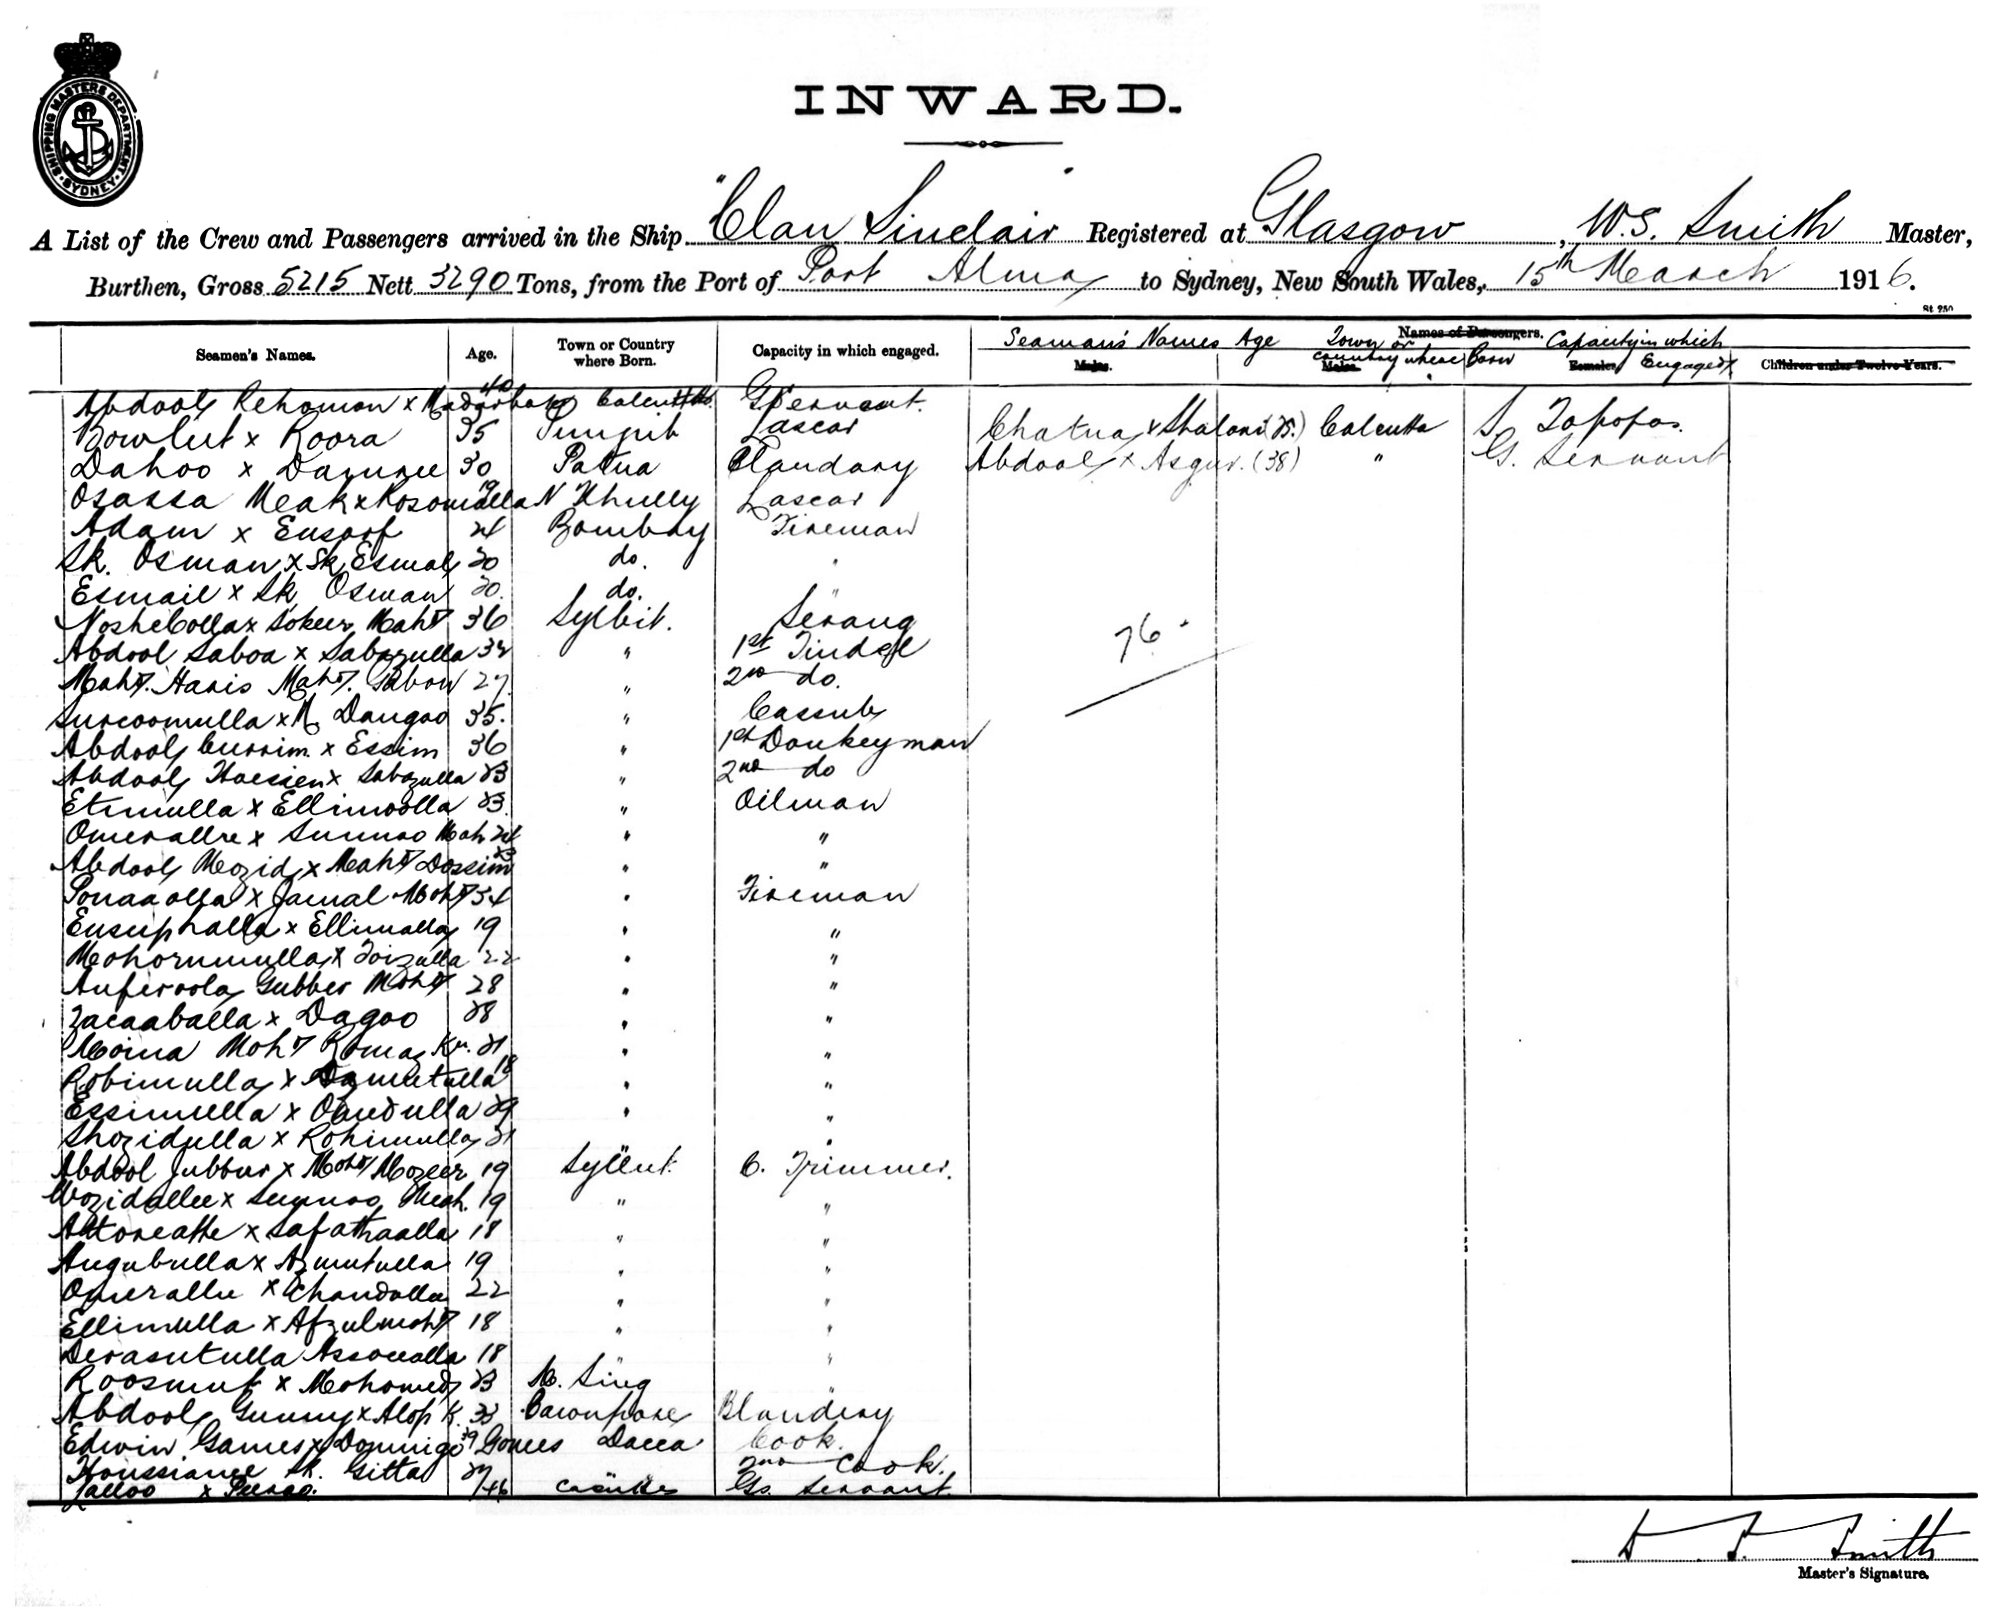 SHIPPING MASTERS DEPARTMENT SYDNEY
INWARD.
A List of the Crew and Passengers arrived in the Ship "Clan Sinclair" Registered at Glasgow, W.S. Smith Master,
Burthen, Gross 5215 Nett 3290 Tons, from the Port of Port Alma to Sydney, New South Wales, 15th March 1916.
Seamen's Names. Age. Town or Country where Born. Capacity in which engaged. Names of Passengers.
Seaman's Names Age Town or country where Born Capacity in which Engaged
Males. Males. Females. Children under Twelve Years.
Abdool Rehoman x 40 Calcutta G Servant.
Bowlut x Roora 35 Lascar
Chatua x Calcutta S. Topopas.
Dahoo x 30 Patna
Abdool x Asgur. (38) " G. Servant
Meah x 19 N Khully Lascar
Adam x Eusoof 24 Bombay Fireman
Sk. Osman x Sk Esmal 30 do. "
Esmail x Sk Osman 30. do. "
x Sokeer Mahd 36 Sylhit. Serang
Abdool Saboa x Sabazulla 32 " 1st Tindel
Mahd. Haris Mahd. 27 " 2nd do.
76
x M Dangoo 35. " Cassub
Abdool Currim x Essim 36 " 1st Donkeyman
Abdool Hossien x Sabazulla 23 " 2nd do
Etimulla x Ellimoolla 23 " Oilman
Omerallee x Sunnoo Mah 24 " "
Abdool Mozid x Mahd Dossim 23 " "
x Jamal Mohd 34 " Fireman
Eusuphalla x Ellimulla 19 " "
Mohorumulla x Foizulla 22 " "
Gubber Mohd 28 " "
x Dagoo 28 " "
Moina Mohd 21 " "
Robimulla x Azmutulla 18 " "
Essimulla x 29 " "
Shozidulla x Rohimulla 21 "
Abdool Jubbur x Mohd Mozeer 19 Sylhut C. Trimmer.
Wozidallee x Sunnoo Meah. 19 " "
x Safathaalla 18 " "
x Azmutulla 19 " "
Omerallee x 22 " "
Ellimulla x Afzulmohd 18 " "
Derasutulla 18 " "
Roosmut x Mohomed 23 M. Sing "
Abdool Gunny x Alop K. 33
Edwin Games x Domingo Gomes 39 Dacca Cook.
Sk. Gitta 27 " 2nd Cook.
Lalloo x 46 Gs. Servant.
Smith
Master's Signature.